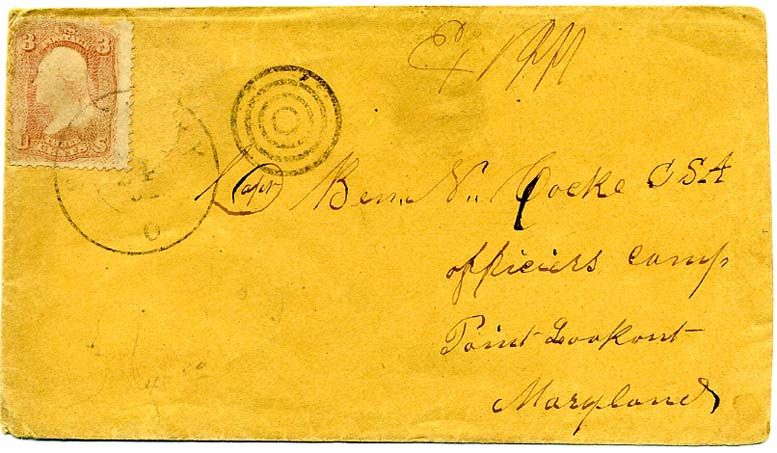 3 3
U S
CENTS
O
Capt Ben. N. Cocke CSA
officiers camp
Point Lookout
Maryland